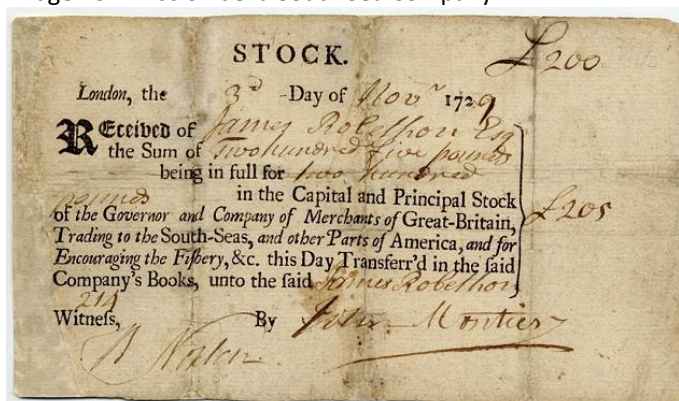 STOCK.
£200
London, the 3d Day of Novr 1729
REceived of James Robethon Esq
the Sum of Two hundred five pounds
being in full for two hundred
pounds in the Capital and Principal Stock
of the Governor and Company of Merchants of Great-Britain,
£205
Trading to the South-Seas, and other Parts of America, and for
Encouraging the Fiſhery, &c. this Day Transferr'd in the ſaid
Company's Books, unto the ſaid James Robethon
214
Witneſs, By John Montier